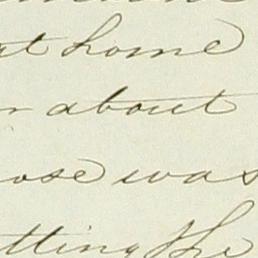 at home
about
ose was
tting the